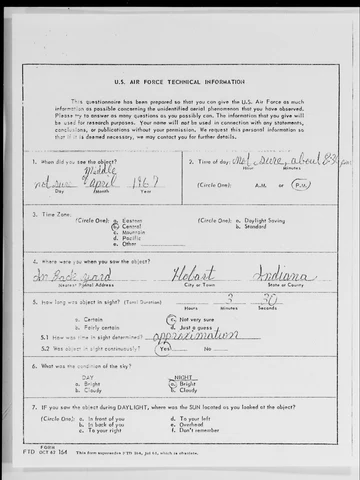 U.S. AIR FORCE TECHNICAL INFORMATION
This questionnaire has been prepared so that you can give the U.S. Air Force as much
information as possible concerning the unidentified aerial phenomenon that you have observed.
Please try to answer as many questions as you possibly can. The information that you give will
be used for research purposes. Your name will not be used in connection with any statements,
conclusions, or publications without your permission. We request this personal information so
that if it is deemed necessary, we may contact you for further details.
1. When did you see the object?
Middle
not sure April 1967
Day Month Year
2. Time of day: not sure, about 8:30 pm
Hour Minutes
(Circle One): A.M. or P.M.
3. Time Zone:
(Circle One): a. Eastern
b. Central
c. Mountain
d. Pacific
e. Other
(Circle One): a. Daylight Saving
b. Standard
4. Where were you when you saw the object?
In Back yard Hobart Indiana
Nearest Postal Address City or Town State or County
5. How long was object in sight? (Total Duration) 3 30
Hours Minutes Seconds
a. Certain c. Not very sure
b. Fairly certain d. Just a guess
5.1 How was time in sight determined? approximation
5.2 Was object in sight continuously? Yes No
6. What was the condition of the sky?
DAY NIGHT
a. Bright a. Bright
b. Cloudy b. Cloudy
7. IF you saw the object during DAYLIGHT, where was the SUN located as you looked at the object?
(Circle One): a. In front of you d. To your left
b. In back of you e. Overhead
c. To your right f. Don't remember
FORM
FTD OCT 62 164 This form supersedes FTD 164, Jul 61, which is obsolete.